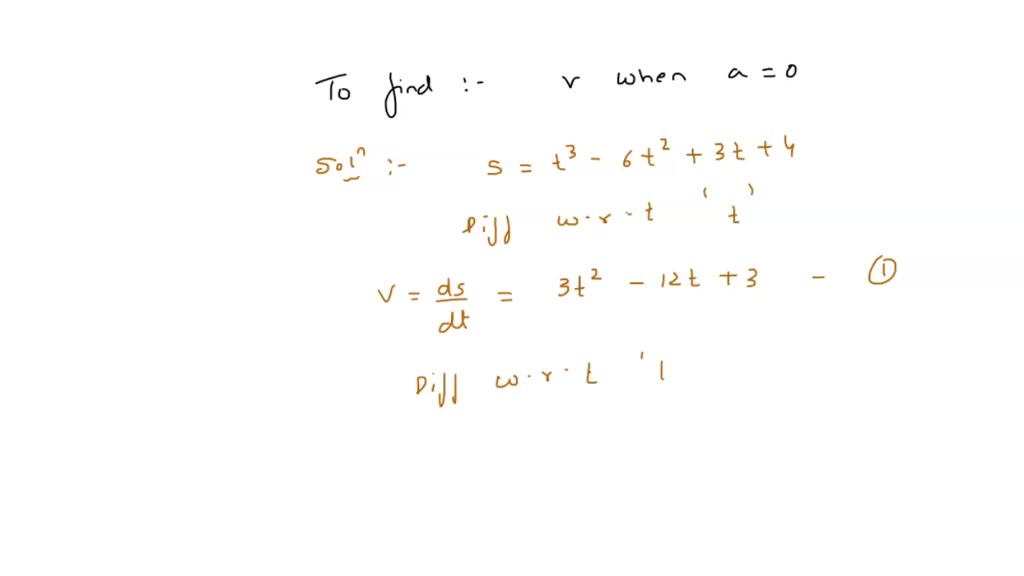 To find :- v when a = 0
Solⁿ :- s = t³ - 6t² + 3t + 4
Diff w.r.t 't'
v = ds/dt = 3t² - 12t + 3 - ①
Diff w.r.t 'l